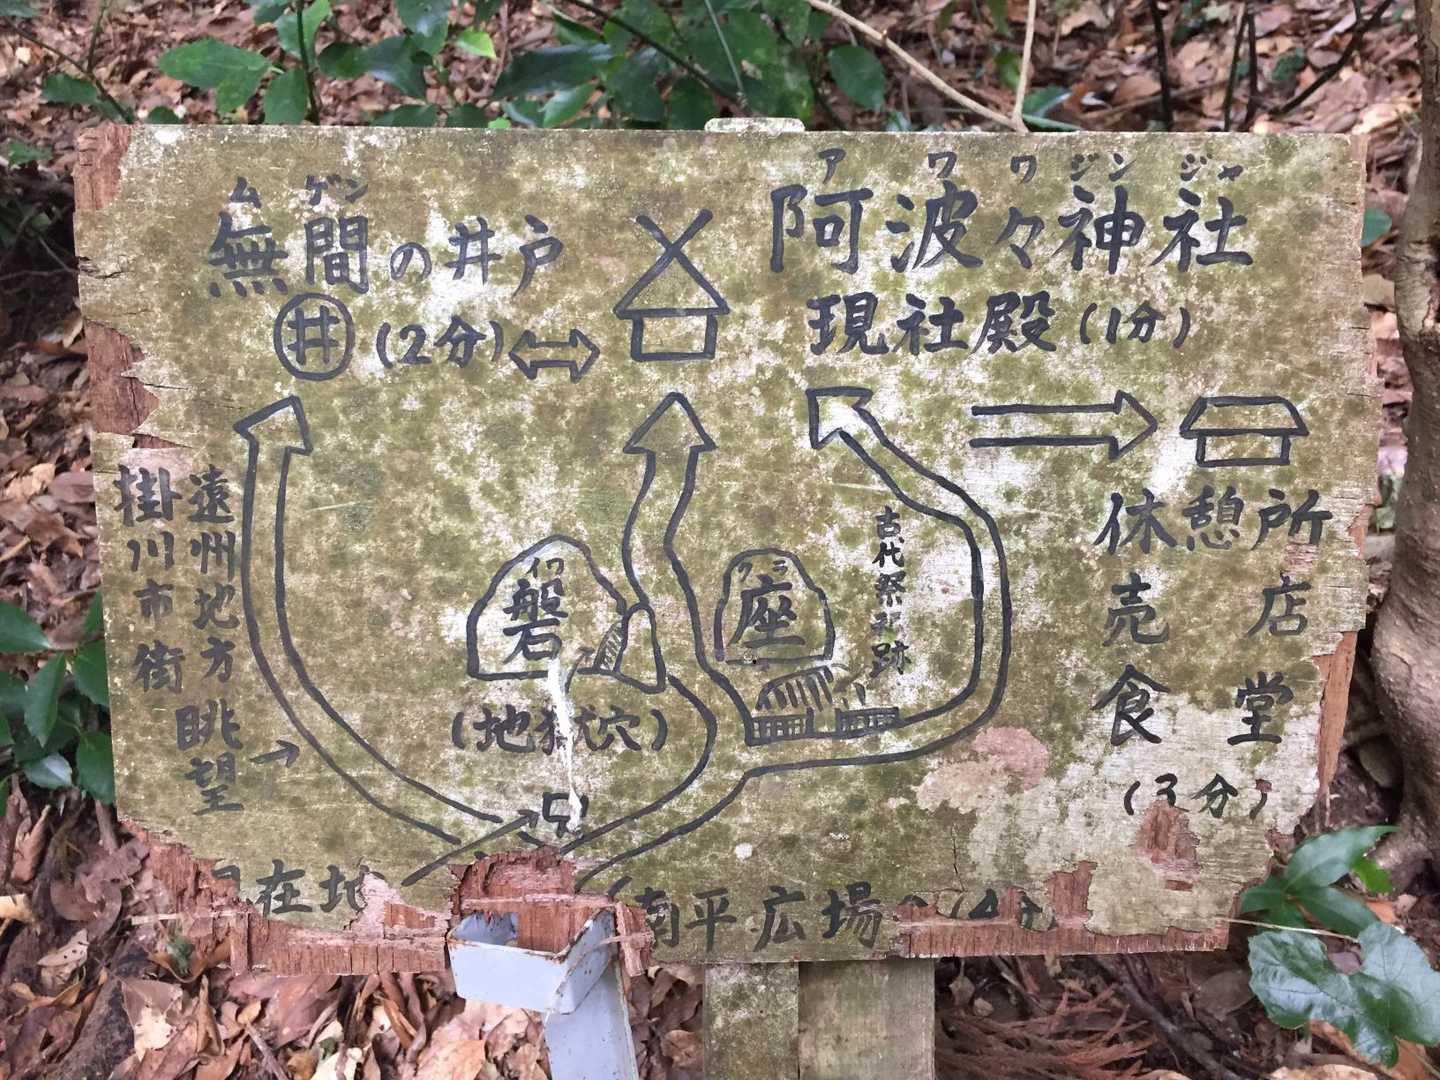 ムゲン
無間の井戸
井 (2分)
アワワジンジャ
阿波々神社
現社殿 (1分)
遠州地方眺望
掛川市街
イワ
磐
(地獄穴)
クラ
座
古代祭祀跡
休憩所
売店
食堂
(3分)
在地
南平広場 (4分)